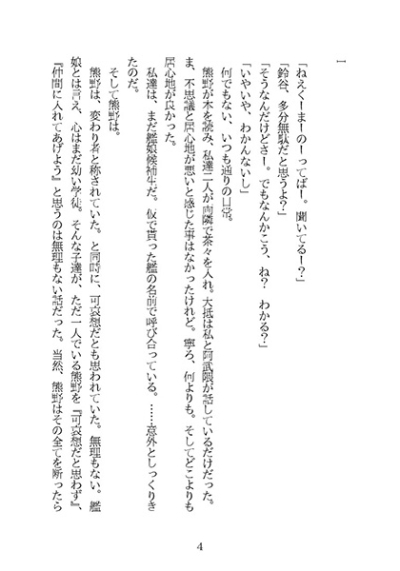 一
「ねえくーまーのーってばー。聞いてるー！？」
「鈴谷、多分無駄だと思うよ？」
「そうなんだけどさー。でもなんかこう、ね？　わかる？」
「いやいや、わかんないし」
何でもない、いつも通りの日常。
熊野が本を読み、私達二人が両隣で茶々を入れ。大抵は私と阿武隈が話しているだけだった。
ま、不思議と居心地が悪いと感じた事はなかったけれど。寧ろ、何よりも。そしてどこよりも
居心地が良かった。
私達は、まだ艦娘候補生だ。仮で貰った艦の名前で呼び合っている。……意外としっくりき
たのだ。
そして熊野は。
熊野は、変わり者と称されていた。と同時に、可哀想だとも思われていた。無理もない。艦
娘とは言え、心はまだ幼い学徒。そんな子達が、ただ一人でいる熊野を『可哀想だと思わず』、
『仲間に入れてあげよう』と思うのは無理もない話だった。当然、熊野はその全てを断ったら
4